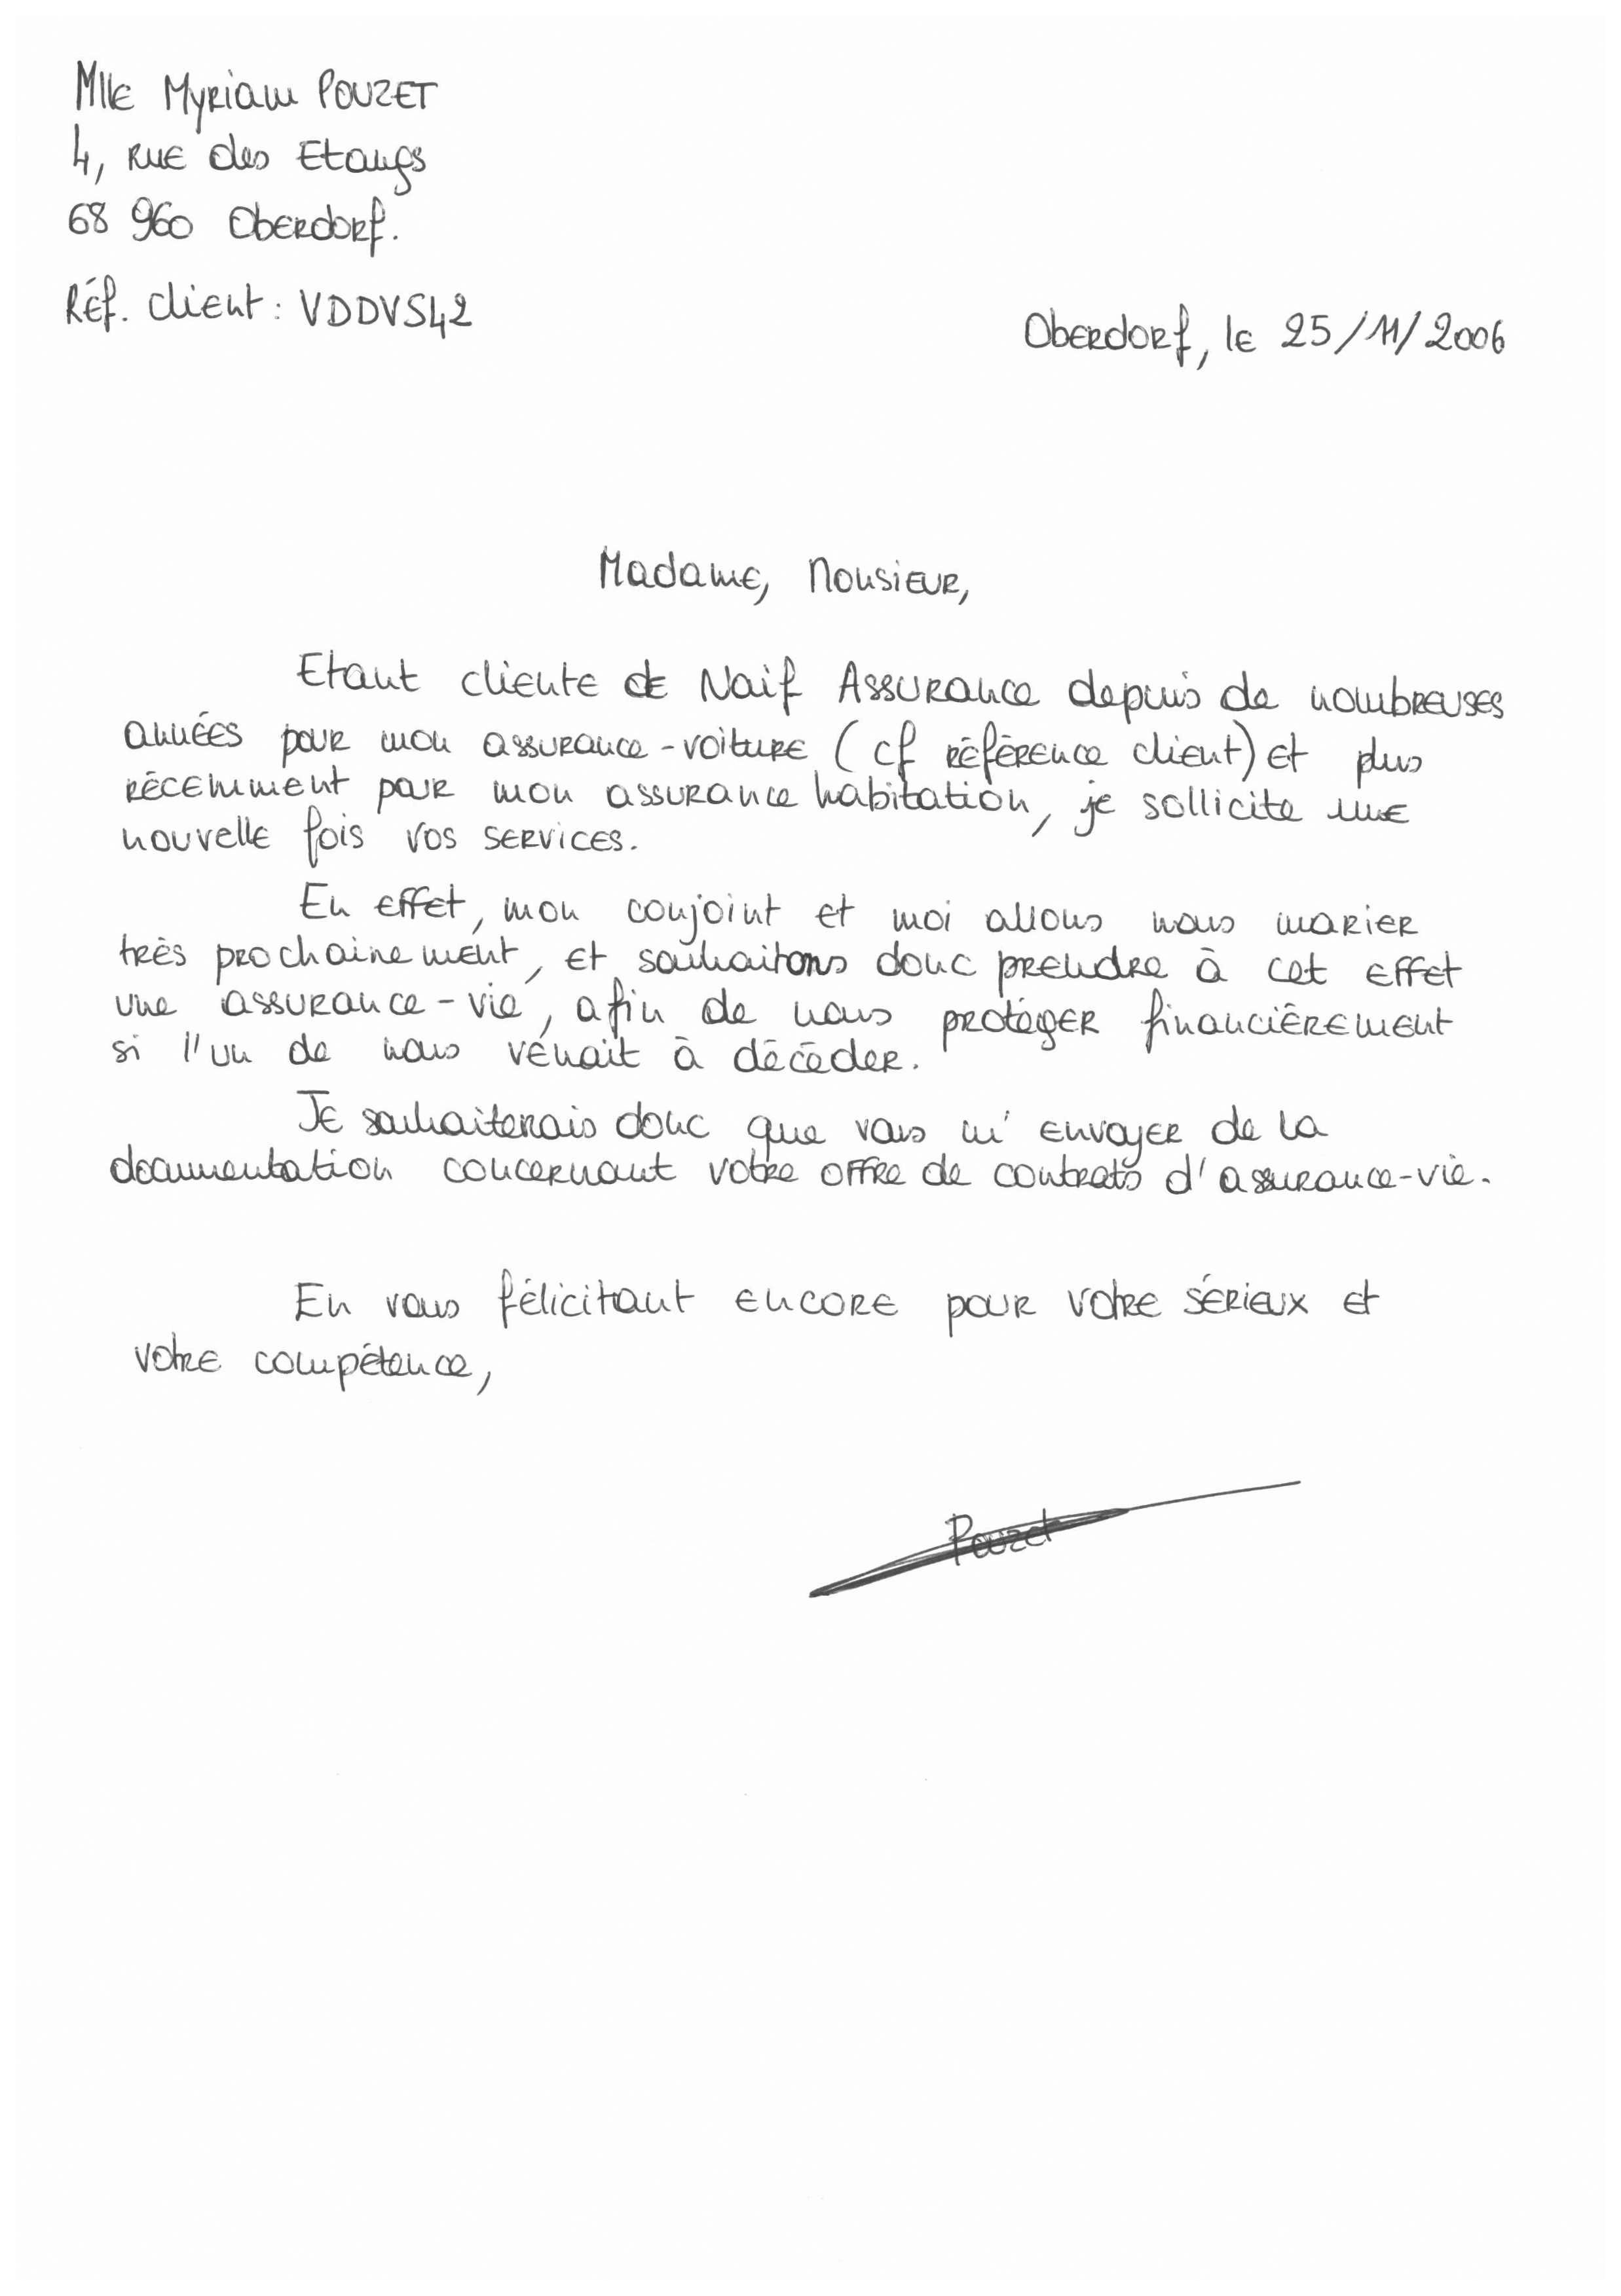 Mlle Myriam POUZET
4, rue des Etangs
68 960 Oberdorf.
Réf. client : VDDVS42
Oberdorf, le 25/11/2006
Madame, Monsieur,
Etant cliente de Naif Assurance depuis de nombreuses
années pour mon assurance-voiture (cf référence client) et plus
récemment pour mon assurance habitation, je sollicite une
nouvelle fois vos services.
En effet, mon conjoint et moi allons nous marier
très prochainement, et souhaitons donc prendre à cet effet
une assurance-vie, afin de nous protéger financièrement
si l'un de nous venait à décéder.
Je souhaiterais donc que vous m'envoyer de la
documentation concernant votre offre de contrats d'assurance-vie.
En vous félicitant encore pour votre sérieux et
votre compétence,
Pouzet